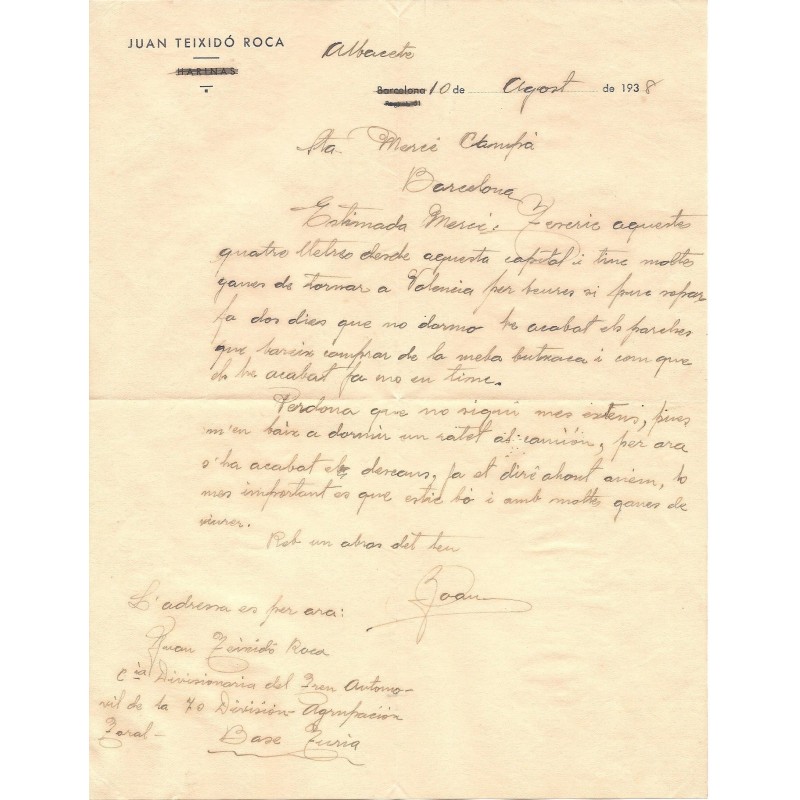 JUAN TEIXIDÓ ROCA
HARINAS
Albacete
Barcelona 10 de Agost de 1938
Sta. Mercé Campá
Barcelona
Estimada Mercé: T'escric aquestes
quatro lletres desde aquesta capital i tinc moltes
ganes de tornar a Valencia per veures si puc
fa dos dies que no dormo he acabat els
que vareix comprar de la meba butxaca i com que
els he acabat ja no en tinc.
Perdona que no sigui mes extens, pues
m'en vaix a dormir un ratet al camión, per ara
s'ha acabat els descans, ja et diré ahont anem, lo
mes important es que estic bó i amb moltes ganes de
veures.
Reb un abras del teu
Joan
L'adressa es per ara:
Juan Teixidó Roca
Cia Divisionaria del Tren Automo-
vil de la 70 División - Agrupación
Toral - Base Turia